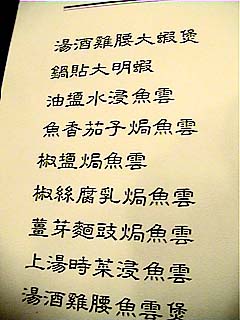 湯酒雞腰大蝦煲
鍋貼大明蝦
油鹽水浸魚雲
魚香茄子焗魚雲
椒鹽焗魚雲
椒絲腐乳焗魚雲
薑芽麵豉焗魚雲
上湯時菜浸魚雲
湯酒雞腰魚雲煲